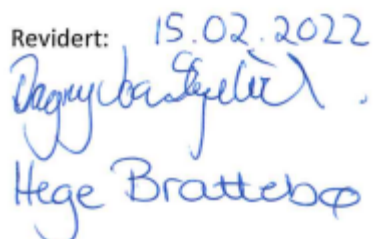 Revidert: 15.02.2022
Dagny
Hege Brattebø